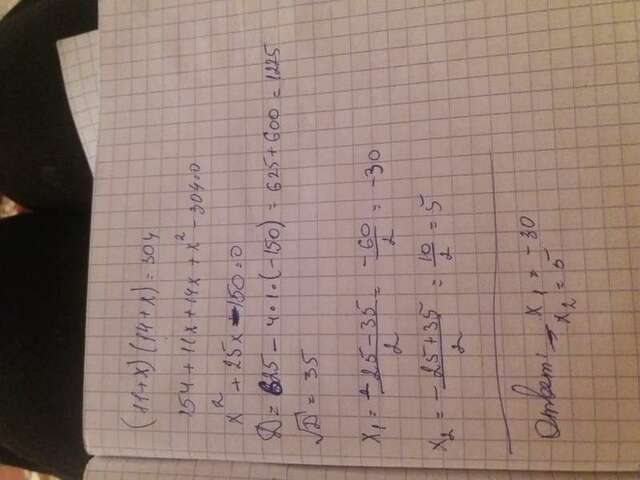 (11+x)(14+x)=304
154+11x+14x+x²-304=0
x²+25x-150=0
D=625-4·1·(-150)=625+600=1225
√D=35
x₁=(-25-35)/2=-60/2=-30
x₂=(-25+35)/2=10/2=5
Ответ: x₁=-30
x₂=5